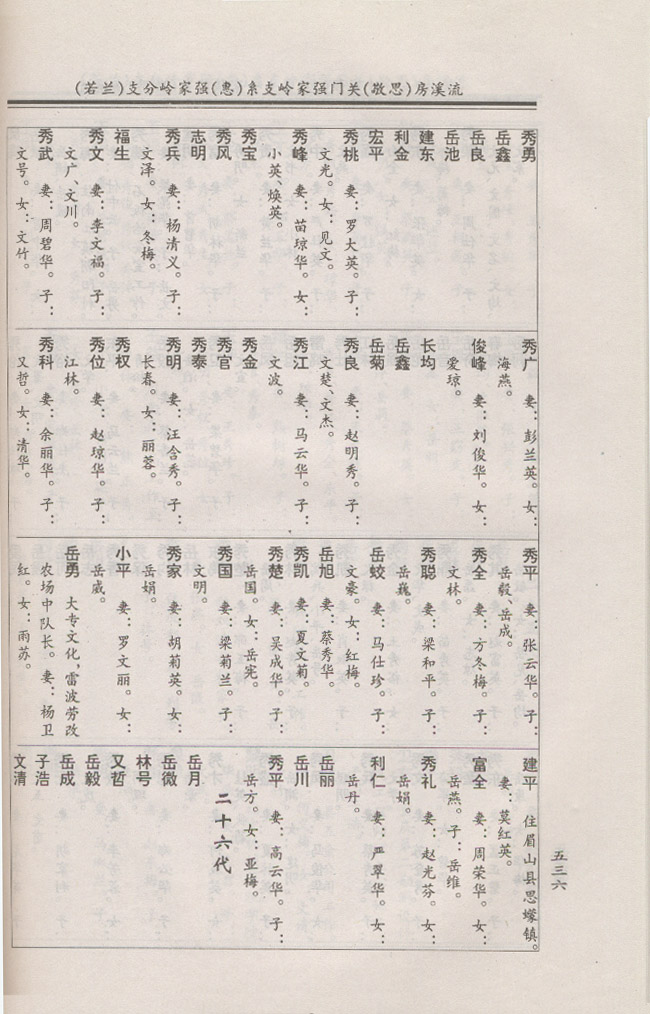 流溪房(思敬)关门强家岭支系(惠)强家岭分支(若兰)
秀勇
岳鑫
岳良
岳池
建东
利金
宏平
秀桃 妻：罗大英。子：
文光。女：见文。
秀峰 妻：苗琼华。女：
小英、焕英。
秀宝
秀风
志明
秀兵 妻：杨清义。子：
文泽。女：冬梅。
福生
秀文 妻：李文福。子：
文广、文川。
秀武 妻：周碧华。子：
文号。女：文竹。
秀广 妻：彭兰英。女：
海燕。
俊峰 妻：刘俊华。女：
爱琼。
长均
岳鑫
岳菊
秀良 妻：赵明秀。子：
文楚、文杰。
秀江 妻：马云华。子：
文波。
秀金
秀官
秀泰
秀明 妻：汪含秀。子：
长春。女：丽蓉。
秀权
秀位 妻：赵琼华。子：
江林。
秀科 妻：余丽华。子：
又哲。女：清华。
秀平 妻：张云华。子：
岳毅、岳成。
秀全 妻：方冬梅。子：
文林。
秀聪 妻：梁和平。子：
岳巍。
岳蛟 妻：马仕珍。子：
文豪。女：红梅。
岳旭 妻：蔡秀华。
秀凯 妻：夏文菊。
秀楚 妻：吴成华。子：
岳国。女：岳宪。
秀国 妻：梁菊兰。子：
文明。
秀家 妻：胡菊英。女：
岳娟。
小平 妻：罗文丽。女：
岳威。
岳勇 大专文化，雷波劳改
农场中队长。妻：杨卫
红。女：雨苏。
建平 住眉山县思蒙镇。
妻：莫红英。
富全 妻：周荣华。女：
岳燕。子：岳维。
秀礼 妻：赵光芬。女：
岳娟。
利仁 妻：严翠华。女：
岳丹。
岳丽
岳川
秀平 妻：高云华。子：
岳方。女：亚梅。
二十六代
岳月
岳微
林号
又哲
岳毅
岳成
子浩
文清
五三六